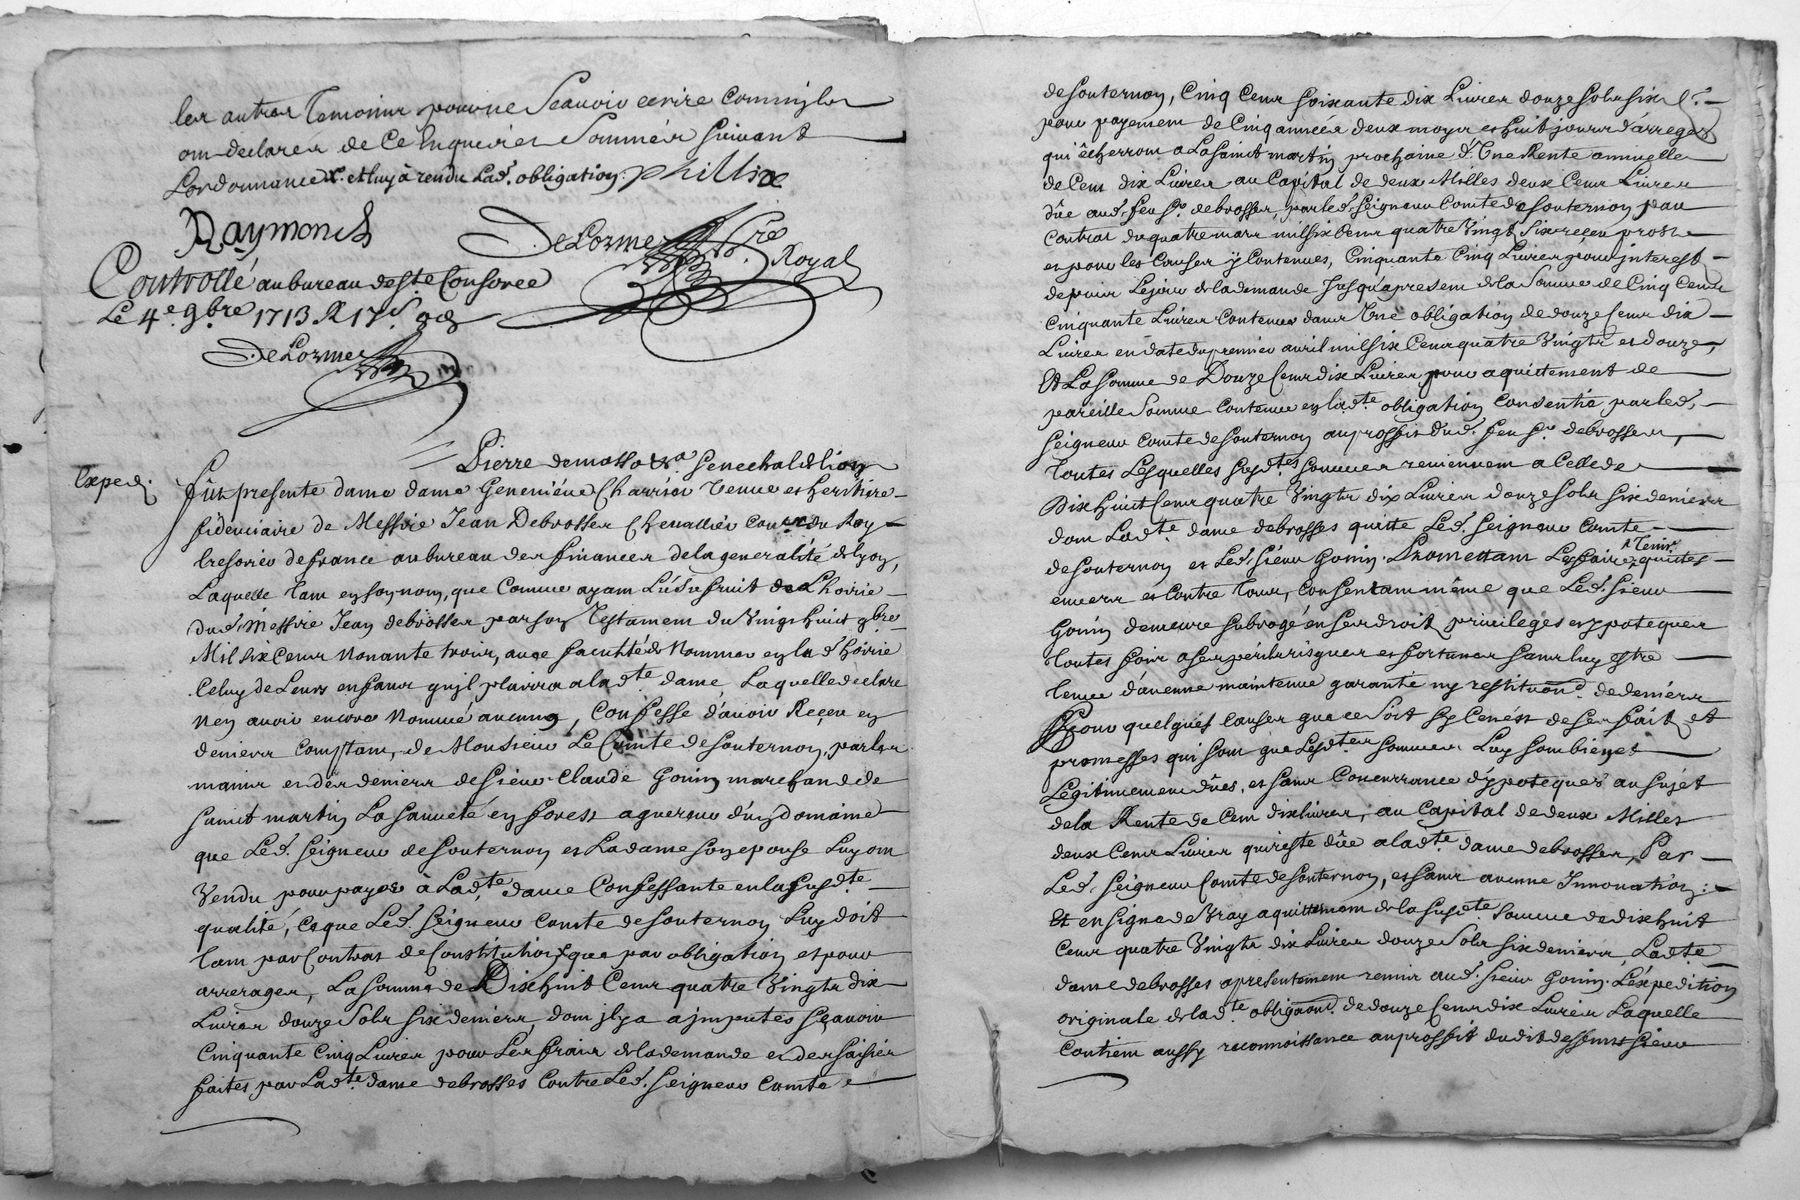 les autres Temoins pour ne Scavoir ecrire Comm'ils
ont declarer de Ce Enquerés et Sommés suivant
L'ordonnance et luy a rendu Lad. obligation. Phillix
Raymond
DeLorme Nre
Royal
Controllé au bureau de Ste Consorce
Le 4e. 9bre 1713 R 17s.
DeLorme
Pierre demasso &a. Senechal de lion
Exped.
Fût presente dame dame Geneviéve Charrier Veuve et heritiere
fideuciaire de Messire Jean Debrosses Chevallier Conser du Roy
tresorier de france au bureau des finances de la generalité de lyon,
Laquelle tant en son nom, que Comme ayant L'usufruit de L'hoirie
dud. Messire Jean debrosses par son Testament du Vingt huit 9bre
Mil six Cens Nonante trois, avec faculté de Nommer en lad. hoirie
Celuy de Leurs enfans qu'jl plairra a ladte. dame Laquelle declare
N'en avoir encore Nommé aucung, Confesse d'avoir Reçeu en
deniers Comptant, de Monsieur Le Comte de Souternon, par les
mains et des deniers de Sieur Claude Gonin marchand de
Saint martin La Sauveté en forest aquereur d'un domaine
que Led. Seigneur de Souternon et La dame son epouse Luy ont
Vendu pour payer à Ladte. dame Confessante en la susdte.
qualité, Ce que Led. Seigneur Comte de Souternon Luy doit
tant par Contrat de Constitution que par obligation et pour
arrerages, La somme de Dix huit Cens quatre Vingts dix
Livres douze Sols six deniers, dont jl y a ajmputés Sçavoir
Cinquante Cinq Livres pour Les frais de la demande et des saisies
faites par Ladte. dame debrosses Contre Led. Seigneur Comte
de Souternon, Cinq Cens soixante dix Livres douze sols six d.
pour payement de Cinq années deux moys et huit jours d'arreges
qui êcherront a La Saint martin prochaine d'Une Rente annuelle
de Cent dix Livres au Capital de deux Milles deux Cens Livres
dûe aud. feu Sr. debrosses, par led. Seigneur Comte de Souternon par
Contrat du quatre mars mil six Cens quatre Vingt Six reçeu
et pour les Causes y Contenues, Cinquante Cinq Livres pour jnterest
depuis Le jour de la demande Jusqu'a present de la Somme de Cinq Cens
Cinquante Livres Contenue dans Une obligation de douze Cens dix
Livres en datte du premier avril mil six Cens quatre Vingts et douze,
Et La Somme de Douze Cens dix Livres pour aquittement de
pareille Somme Contenue en ladte. obligation Consentie par led.
Seigneur Comte de Souternon au proffit dud. feu Sr. debrosses,
toutes Lesquelles susdtes. sommes reviennent a Celle de
Dix huit Cens quatre Vingts dix Livres douze sols six deniers
dont Ladte. dame debrosses quitte Led. Seigneur Comte
de Souternon et Led. Sieur Gonin. Promettant Les faire & Tenir quittes
envers et Contre tous, Consentant même que Led. Sieur
Gonin demeure subrogé en ses droits privileges et ypoteques
toutes fois a ses perils risques et fortunes sans luy estre
tenue d'aucune maintenue garantie ny restituon. de deniers
Pour quelques Causes que ce Soit si Ce n'est de ses faits et
promesses qui sont que Lesdtes. sommes Luy sont bien et
Legitimement dûes, et sans Concurrance d'ypoteques au sujet
de la Rente de Cent dix livres, au Capital de deux Milles
deux Cens Livres qui reste dûe a ladte. dame debrosses, Par
Led. Seigneur Comte de Souternon, et sans aucune Innovation;
Et en signe de Vray aquittement de la susdte. Somme de dix huit
Cens quatre Vingts dix Livres douze Sols six deniers, Ladte.
dame debrosses a presentement remis aud. Sieur Gonin. L'éxpedition
originale de ladte. obligaon. de douze Cens dix Livres Laquelle
Contient aussy reconnoissance au proffit du dit deffunt Sieur